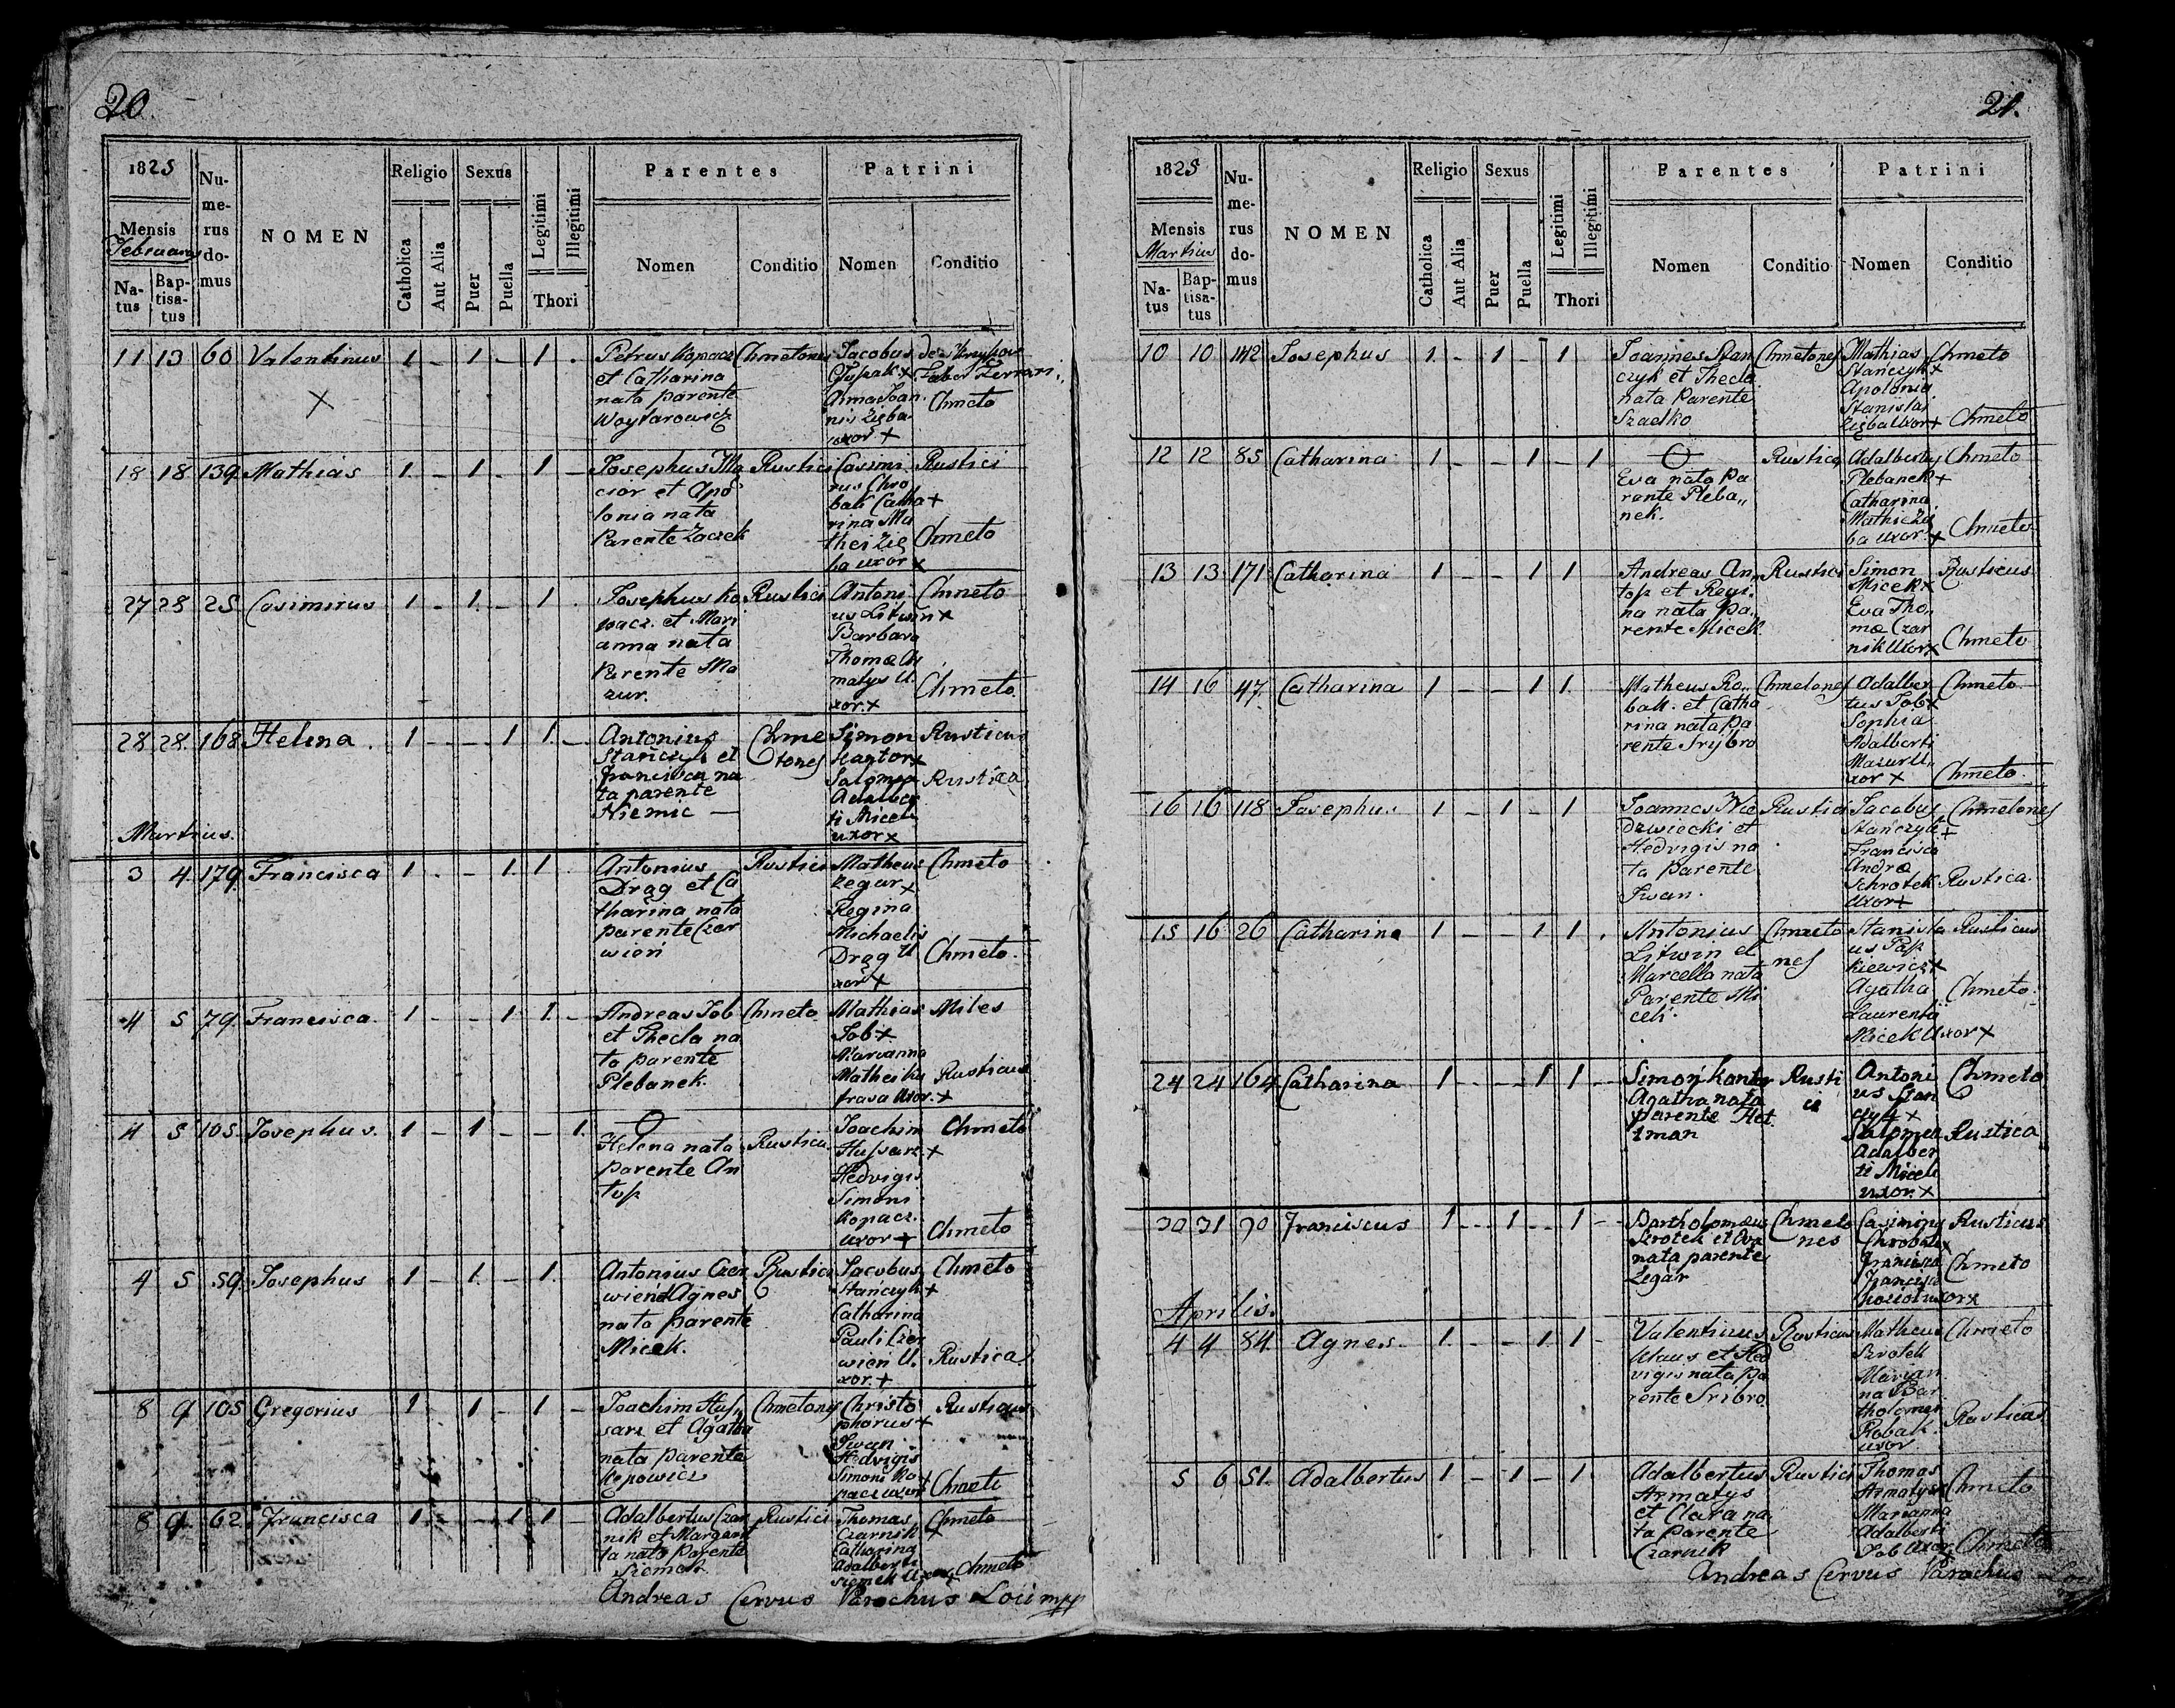 20.
1825
Mensis
Februarius
Natus
Baptisatus
Numerus domus
NOMEN
Religio
Catholica
Aut Alia
Sexus
Puer
Puella
Legitimi
Illegitimi
Thori
Parentes
Nomen
Conditio
Patrini
Nomen
Conditio
11 13 60 Valentinus 1 - 1 - 1 .
×
Petrus Kopacz
et Catharina
nata parente
Woytarowicz
Chmetones
Jacobus
Anna Joan
nis Zięba
uxor +
Chmeto
18 18 139 Mathias 1 - 1 - 1 -
Josephus Ma
cior et Apo
lonia nata
Parente Zaczek
Rustici
Casimi
rus Chro
bak Catha +
rina Ma
thei Zię
ba uxor x
Rustici
Chmeto
27 28 25 Casimirus 1 - 1 - 1 .
Josephus Ko
pacz. et Mari
anna nata
Parente Ma
zur.
Rustici
Antoni
us Litwin x
Barbara
Thomæ Ar
matys U.
xor. +
Chmeto
Chmeto
28 28. 168 Helena. 1 - - 1 1. -
Antonius
Stańczyk et
Francisca na
ta parente
Niemic —
Chme
tones
Simon
Kantor x
Salomea
Adalber
ti Micek
uxor x
Rusticus
Rustica
Martius.
3 4 179 Francisca 1 . - 1. 1 .
Antonius
Drąg et Ca
tharina nata
parente Czer
wień
Rustici
Matheus
Zegar x
Regina
Michaelis
Drąg U
xor x
Chmeto
Chmeto.
4 5 79 Francisca. 1 - - 1 1. -
Andreas Job
et Thecla na
ta parente
Plebanek.
Chmeto
Mathias
Job +
Marianna
Mathei Ku
trava Uxor. +
Miles
Rusticus
4 5 105. Josephus. 1 - 1 - - 1.
Helena nata
parente An
top
Rustica
Joachim
Husarz +
Hedvigis
Simoni
Kopacz.
uxor +
Chmeto
Chmeto
4 5 59. Josephus 1 - 1. - 1.
Antonius Czer
wień et Agnes
nata parente
Micek.
Rustici
Jacobus
Stańczyk +
Catharina
Pauli Czer
wien U.
xor. +
Chmeto
Rustica
8 9 105 Gregorius 1 - 1 - 1 -
Joachim Hus,,
sarz et Agatha
nata parente
Kepowicz
Chmetones
Christo
phorus +
Iwan
Hedvigis
Simoni Ko
pacz uxor +
Rusticus
Chmeto
8 9. 62. Francisca 1 - - 1 1 -
Adalbertus Czar
nik et Margari
ta nata parente
Siemek
Rustici
Thomas
Czarnik +
Catharina
Adalberti
Siemek Uxor +
Chmeto
Chmeto
Andreas Cervus Parochus Loci mpp
21.
1825
Mensis
Martius
Natus
Baptisatus
Numerus domus
NOMEN
Religio
Catholica
Aut Alia
Sexus
Puer
Puella
Legitimi
Illegitimi
Thori
Parentes
Nomen
Conditio
Patrini
Nomen
Conditio
10 10 142 Josephus 1 - 1 - 1
Joannes Stan
czyk et Thecla
nata Parente
Szadko
Chmetones
Mathias
Stańczyk +
Apolonia
Stanislai
Zięba Uxor +
Chmeto
Chmeto
12 12 85 Catharina 1 - - 1 - 1
Eva nata Pa
rente Pleba,,
nek.
Rustica
Adalbertus
Plebanek +
Catharina
Mathiæ Zię
ba uxor. +
Chmeto
Chmeto
13 13 171 Catharina 1 - - 1 1
Andreas An,,
top et Regi,,
na nata Pa,,
rente Micek.
Rustici
Simon
Micek x
Eva Tho,,
mæ Czar
nik Uxor x
Rusticus
Chmeto
14 16 47. Catharina 1 - - 1 1.
Matheus Ro,,
bak. et Catha
rina nata Pa
rente Srybro
Chmetones
Adalber
tus Job x
Sophia
Adalberti
Mazur U,,
xor x
Chmeto
Chmeto.
16 16 118 Josephus. 1 - 1 - 1
Joannes Nie
dzwiecki et
Hedvigis na
ta parente
Iwan.
Rustici
Jacobus
Stańczyk +
Francisca
Andræ
Schrotek
Uxor +
Chmetones
Rustica.
15 16 26 Catharina 1 - - 1 1 .
Antonius
Litwin et
Marcella nata
Parente Mi
cek.
Chmeto
nes
Stanisla
us Pap
kiewicz x
Agatha
Laurentii
Micek Uxor x
Rusticus
Chmeto.
24 24 164 Catharina 1 - - 1 1 -
Simon Kantor
Agatha nata
parente Het
tman
Rusti
ci
Antoni
us Stan
czyk x
Salomea
Adalber
ti Micek
uxor. x
Chmeto
Rustica
30 31 90 Franciscus 1 - 1 - 1 -
Bartholomæus
Szrotek et Eva
nata parente
Zegar
Chmeto
nes
Casimirus
Chrobak x
Francisca
Francisci
uxor x
Rusticus
Chmeto
Aprilis.
4 4 84. Agnes. 1. - - 1 1 -
Valentinus
Klaus et Hed
vigis nata pa
rente Sribro
Rusticus
Matheus
Szrotek
Marian
na Bar
tholomei
Robak.
uxor
Chmeto
Rusticus
5 6 51. Adalbertus 1 - 1 - 1
Adalbertus
Armatys
et Clara na
ta Parente
Czarnik
Rustici
Thomas
Armatys x
Marianna
Adalberti
Job Uxor
Chmeto
Chmeto
Andreas Cervus Parochus Loci